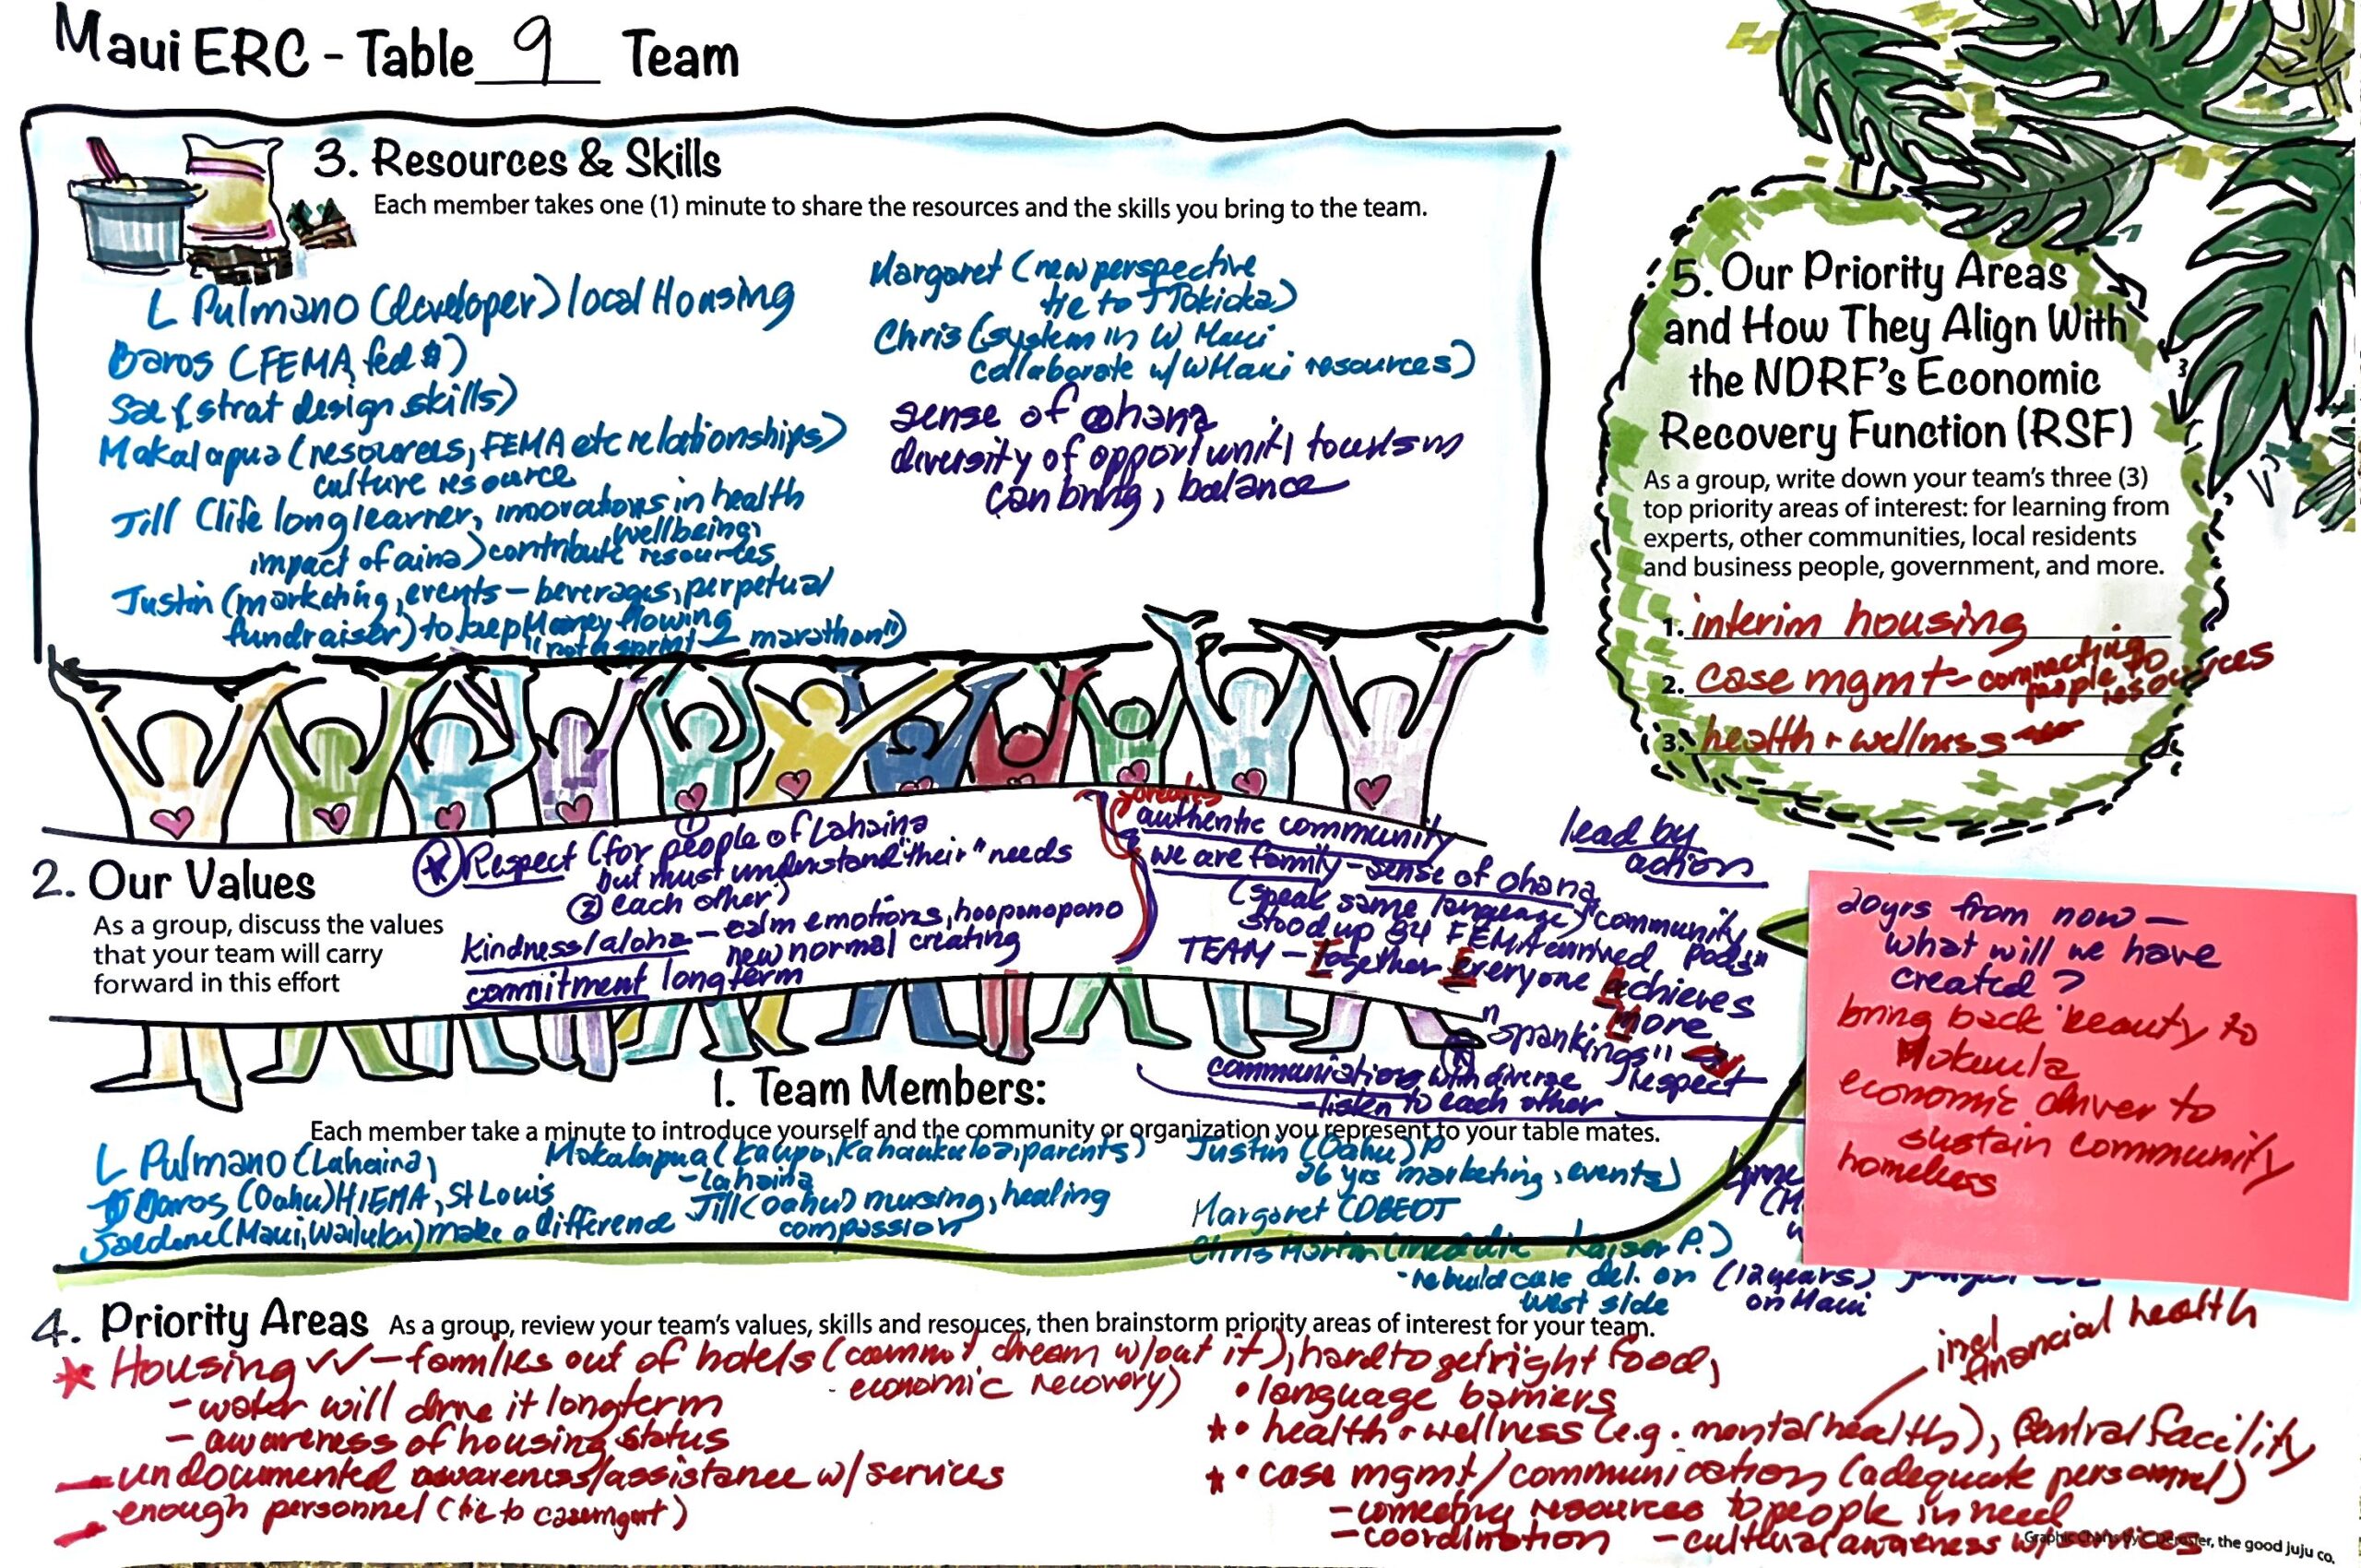 Maui ERC - Table 9 Team
3. Resources & Skills
Each member takes one (1) minute to share the resources and the skills you bring to the team.
L Pulmano (developer) local Housing
Baros (FEMA, fed $)
Sae (strat design skills)
Makalapua (resources, FEMA etc relationships)
culture resource
Jill (life long learner, innovations in health
wellbeing,
impact of aina) contribute resources
Justin (marketing, events - beverages, perpetual
fundraiser) to keep money flowing
"not a sprint - marathon")
Margaret (new perspective
tie to J Tokioka)
Chris (system in W Maui
collaborate w/ W Maui resources)
sense of ohana
diversity of opportunity tourism
can bring, balance
5. Our Priority Areas
and How They Align With
the NDRF's Economic
Recovery Function (RSF)
As a group, write down your team's three (3)
top priority areas of interest: for learning from
experts, other communities, local residents
and business people, government, and more.
1. interim housing
2. case mgmt - connecting
people to
resources
3. health + wellness
2. Our Values
As a group, discuss the values
that your team will carry
forward in this effort
Respect (for people of Lahaina
but must understand "their" needs
② each other)
Kindness/aloha - calm emotions, hooponopono
new normal creating
commitment longterm
creates
authentic community
we are family - sense of ohana
(speak same language) "community
stood up B4 FEMA arrived pods"
TEAM - Together Everyone Achieves
More
"spankings"
respect
communication with diverse
- listen to each other
lead by
action
20yrs from now -
what will we have
created?
bring back beauty to
Mokuula
economic driver to
sustain community
homeless
1. Team Members:
Each member take a minute to introduce yourself and the community or organization you represent to your table mates.
L Pulmano (Lahaina)
Baros (Oahu) HIEMA, St Louis
Saedene (Maui, Wailuku) make a difference
Makalapua (Kaupo, Kahaukuloa, parents)
- Lahaina
Jill (Oahu) nursing, healing
compassion
Justin (Oahu) P
26 yrs marketing, events)
Margaret (DBEDT
Chris Martin (medic - Kaiser P.)
- rebuild care del. on
west side
(12 years)
on Maui
4. Priority Areas
As a group, review your team's values, skills and resouces, then brainstorm priority areas of interest for your team.
Housing ✓✓ - families out of hotels (cannot dream w/out it), hard to get right food,
- economic recovery)
- water will drive it longterm
- awareness of housing status
- undocumented awareness/assistance w/ services
- enough personnel (tie to casemgmt)
• language barriers
• health + wellness (e.g. mental health), central facility
incl
financial health
• case mgmt/communication (adequate personnel)
- connecting resources to people in need
- coordination - cultural awareness w/
the good juju co.